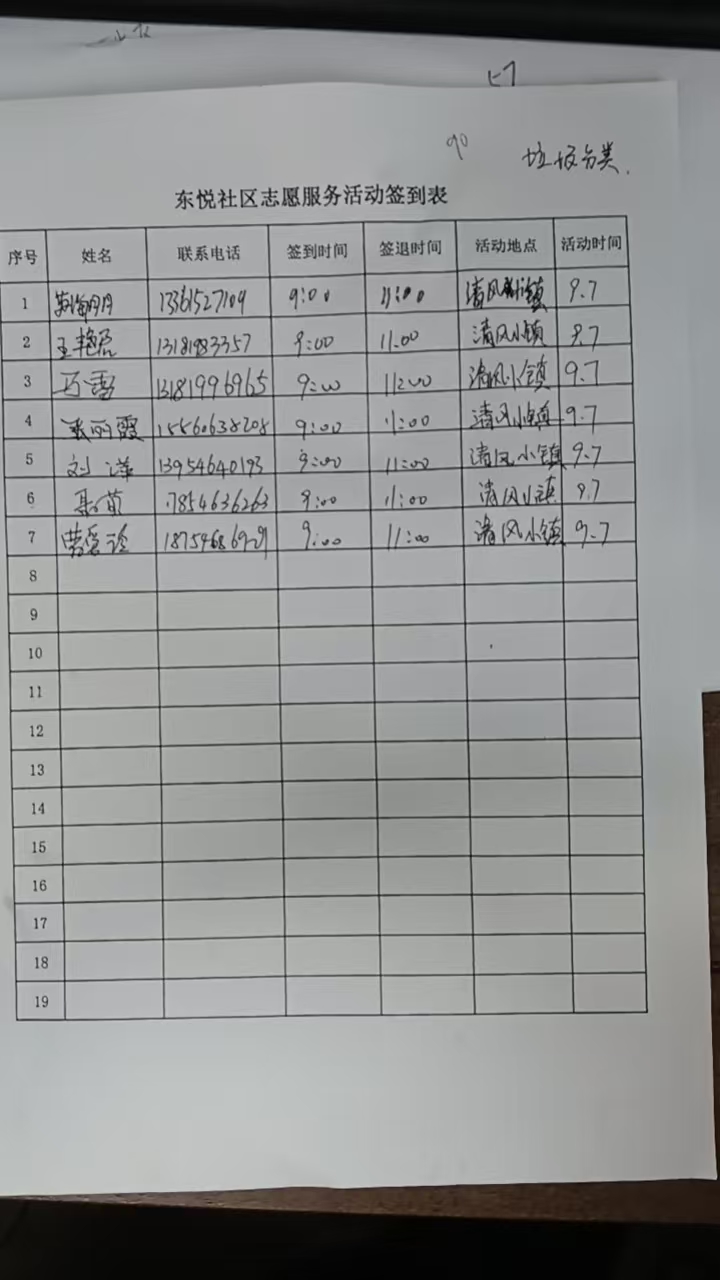 90
垃圾分类.
东悦社区志愿服务活动签到表
序号 姓名 联系电话 签到时间 签退时间 活动地点 活动时间
1 13361527109 9:00 11:00 清风小镇 9.7
2 王艳 13181983357 9:00 11.00 清风小镇 9.7
3 万雪 13181996965 9:00 11:00 清风小镇 9.7
4 张丽霞 15560638208 9:00 11:00 清风小镇 9.7
5 刘洋 13954640193 9:00 11:00 清风小镇 9.7
6 17854636263 9:00 11:00 清风小镇 9.7
7 9:00 11:00 清风小镇 9.7
8
9
10
11
12
13
14
15
16
17
18
19